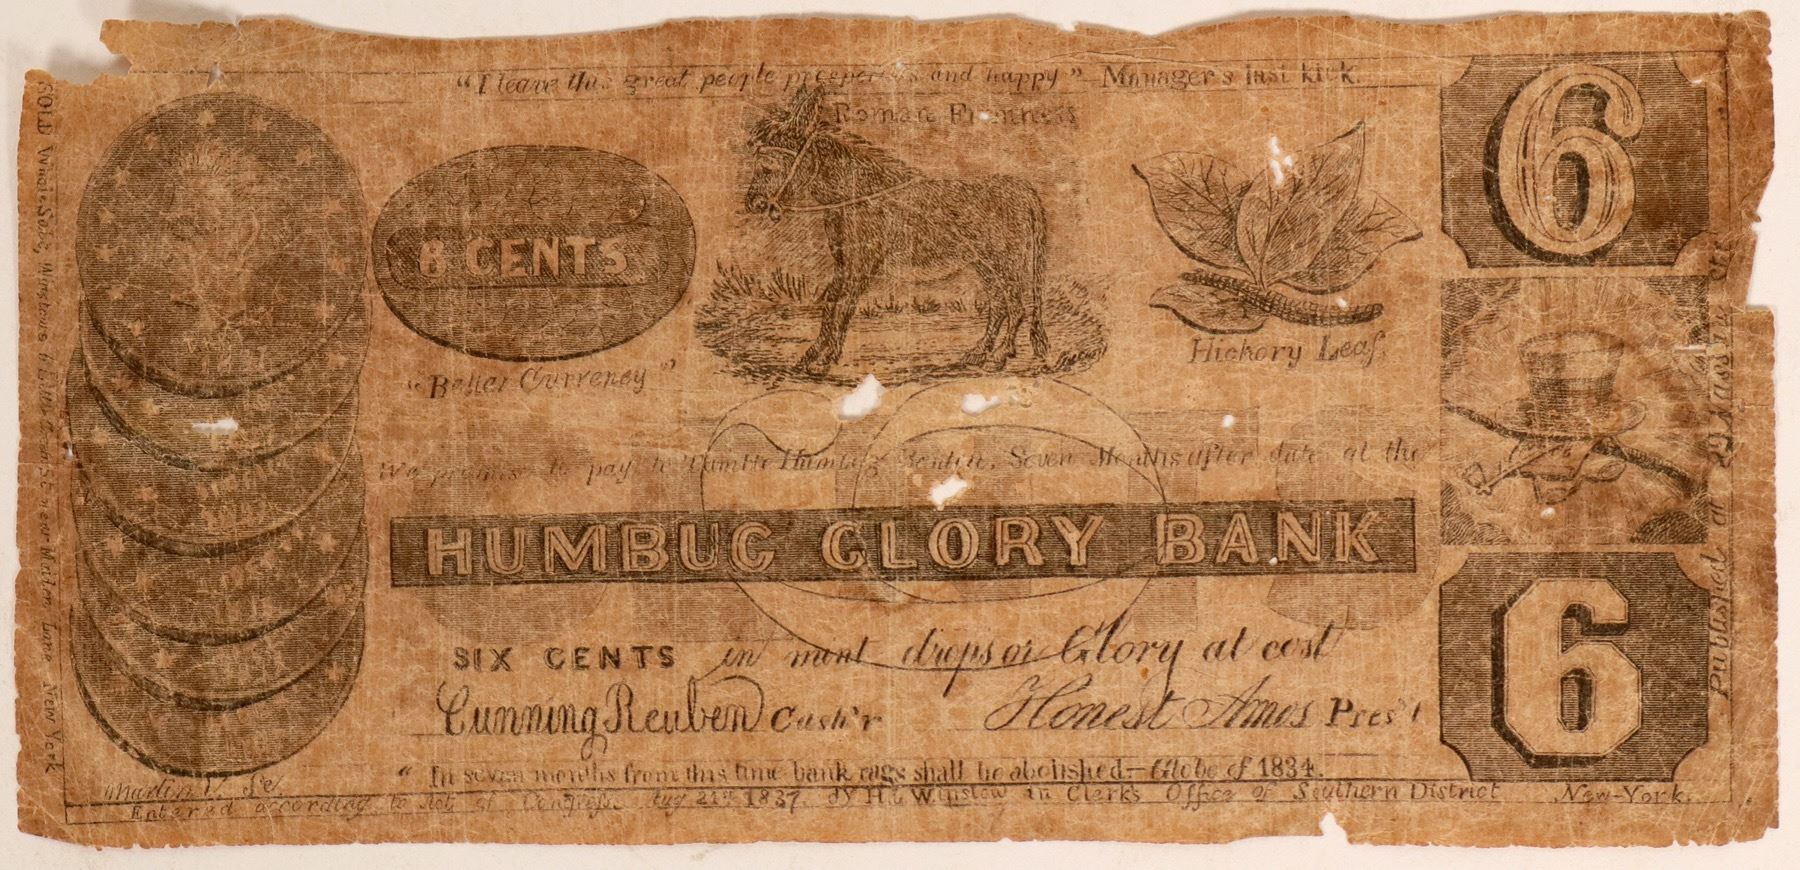 "I leave this great people prosperous and happy" Manager's last kick.
Roman Firmness
6
6 CENTS
"Better Currency"
Hickory Leaf.
We promise to pay to Humbug Benton, Seven Months after date at the
HUMBUG GLORY BANK
SIX CENTS in mint drops or Glory at cost
Cunning Reuben Cash'r
Honest Amos Pres't
6
"In seven months from this time bank rags shall be abolished—Globe of 1834.
Martin V. Sc.
Entered according to Act of Congress Aug 21st 1837. by H. Winslow in Clerks Office of Southern District New-York.
SOLD Whole Sale, Winslows Maiden Lane New York
Published at Nassau St